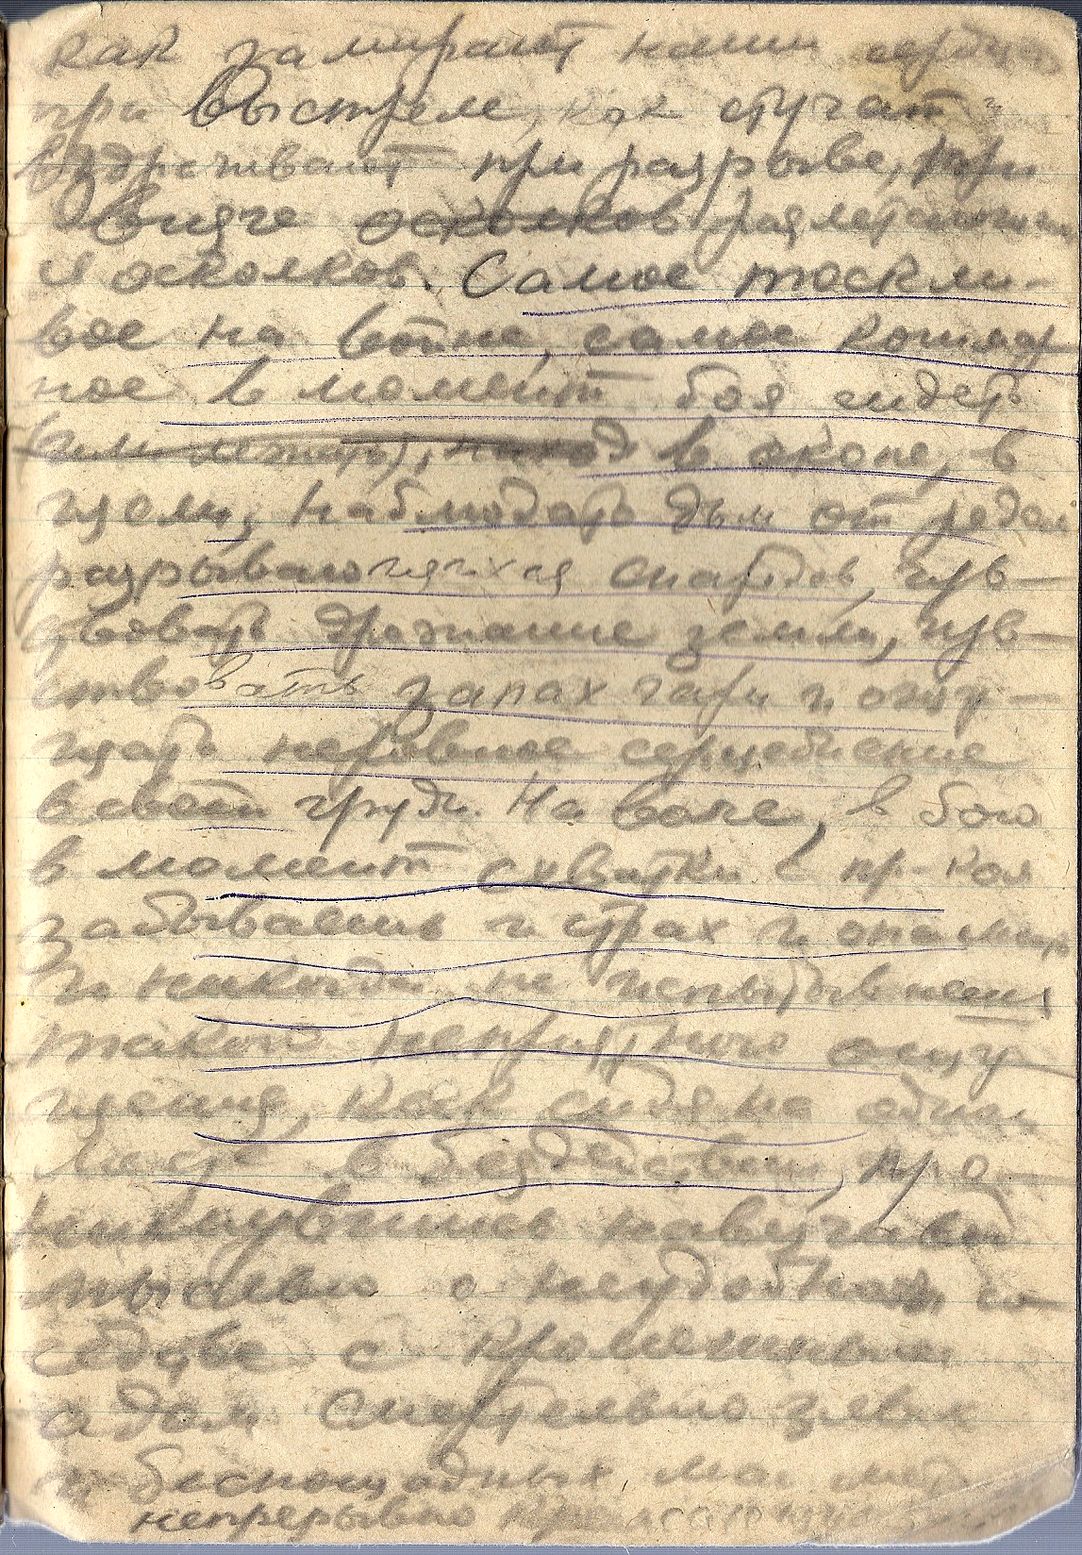 как замирают наши сердца
при выстреле, как стучат и
вздрагивают при разрыве, при
визге осколков разлетающих
ся осколков. Самое тоскли-
вое на войне, самое кошмар
ное в момент боя сидеть
(или лежать), в окопе, в
щели, наблюдать дым от
разрывающихся снарядов, чув-
ствовать дрожание земли, чув-
ствовать запах гари и ощу-
щать неровное сердцебиение
в своей груди. На воле, в бою
в момент схватки с пр-ком
забываешь и страх и опасность
и никогда не испытываешь
такого неприятного ощу-
щения, как сидя на одном
месте в бездействии, про-
никнувшись навязчивой
мыслью о неудобном со-
седстве с кромешным
адом смертельно злых
и беспощадных
непрерывно